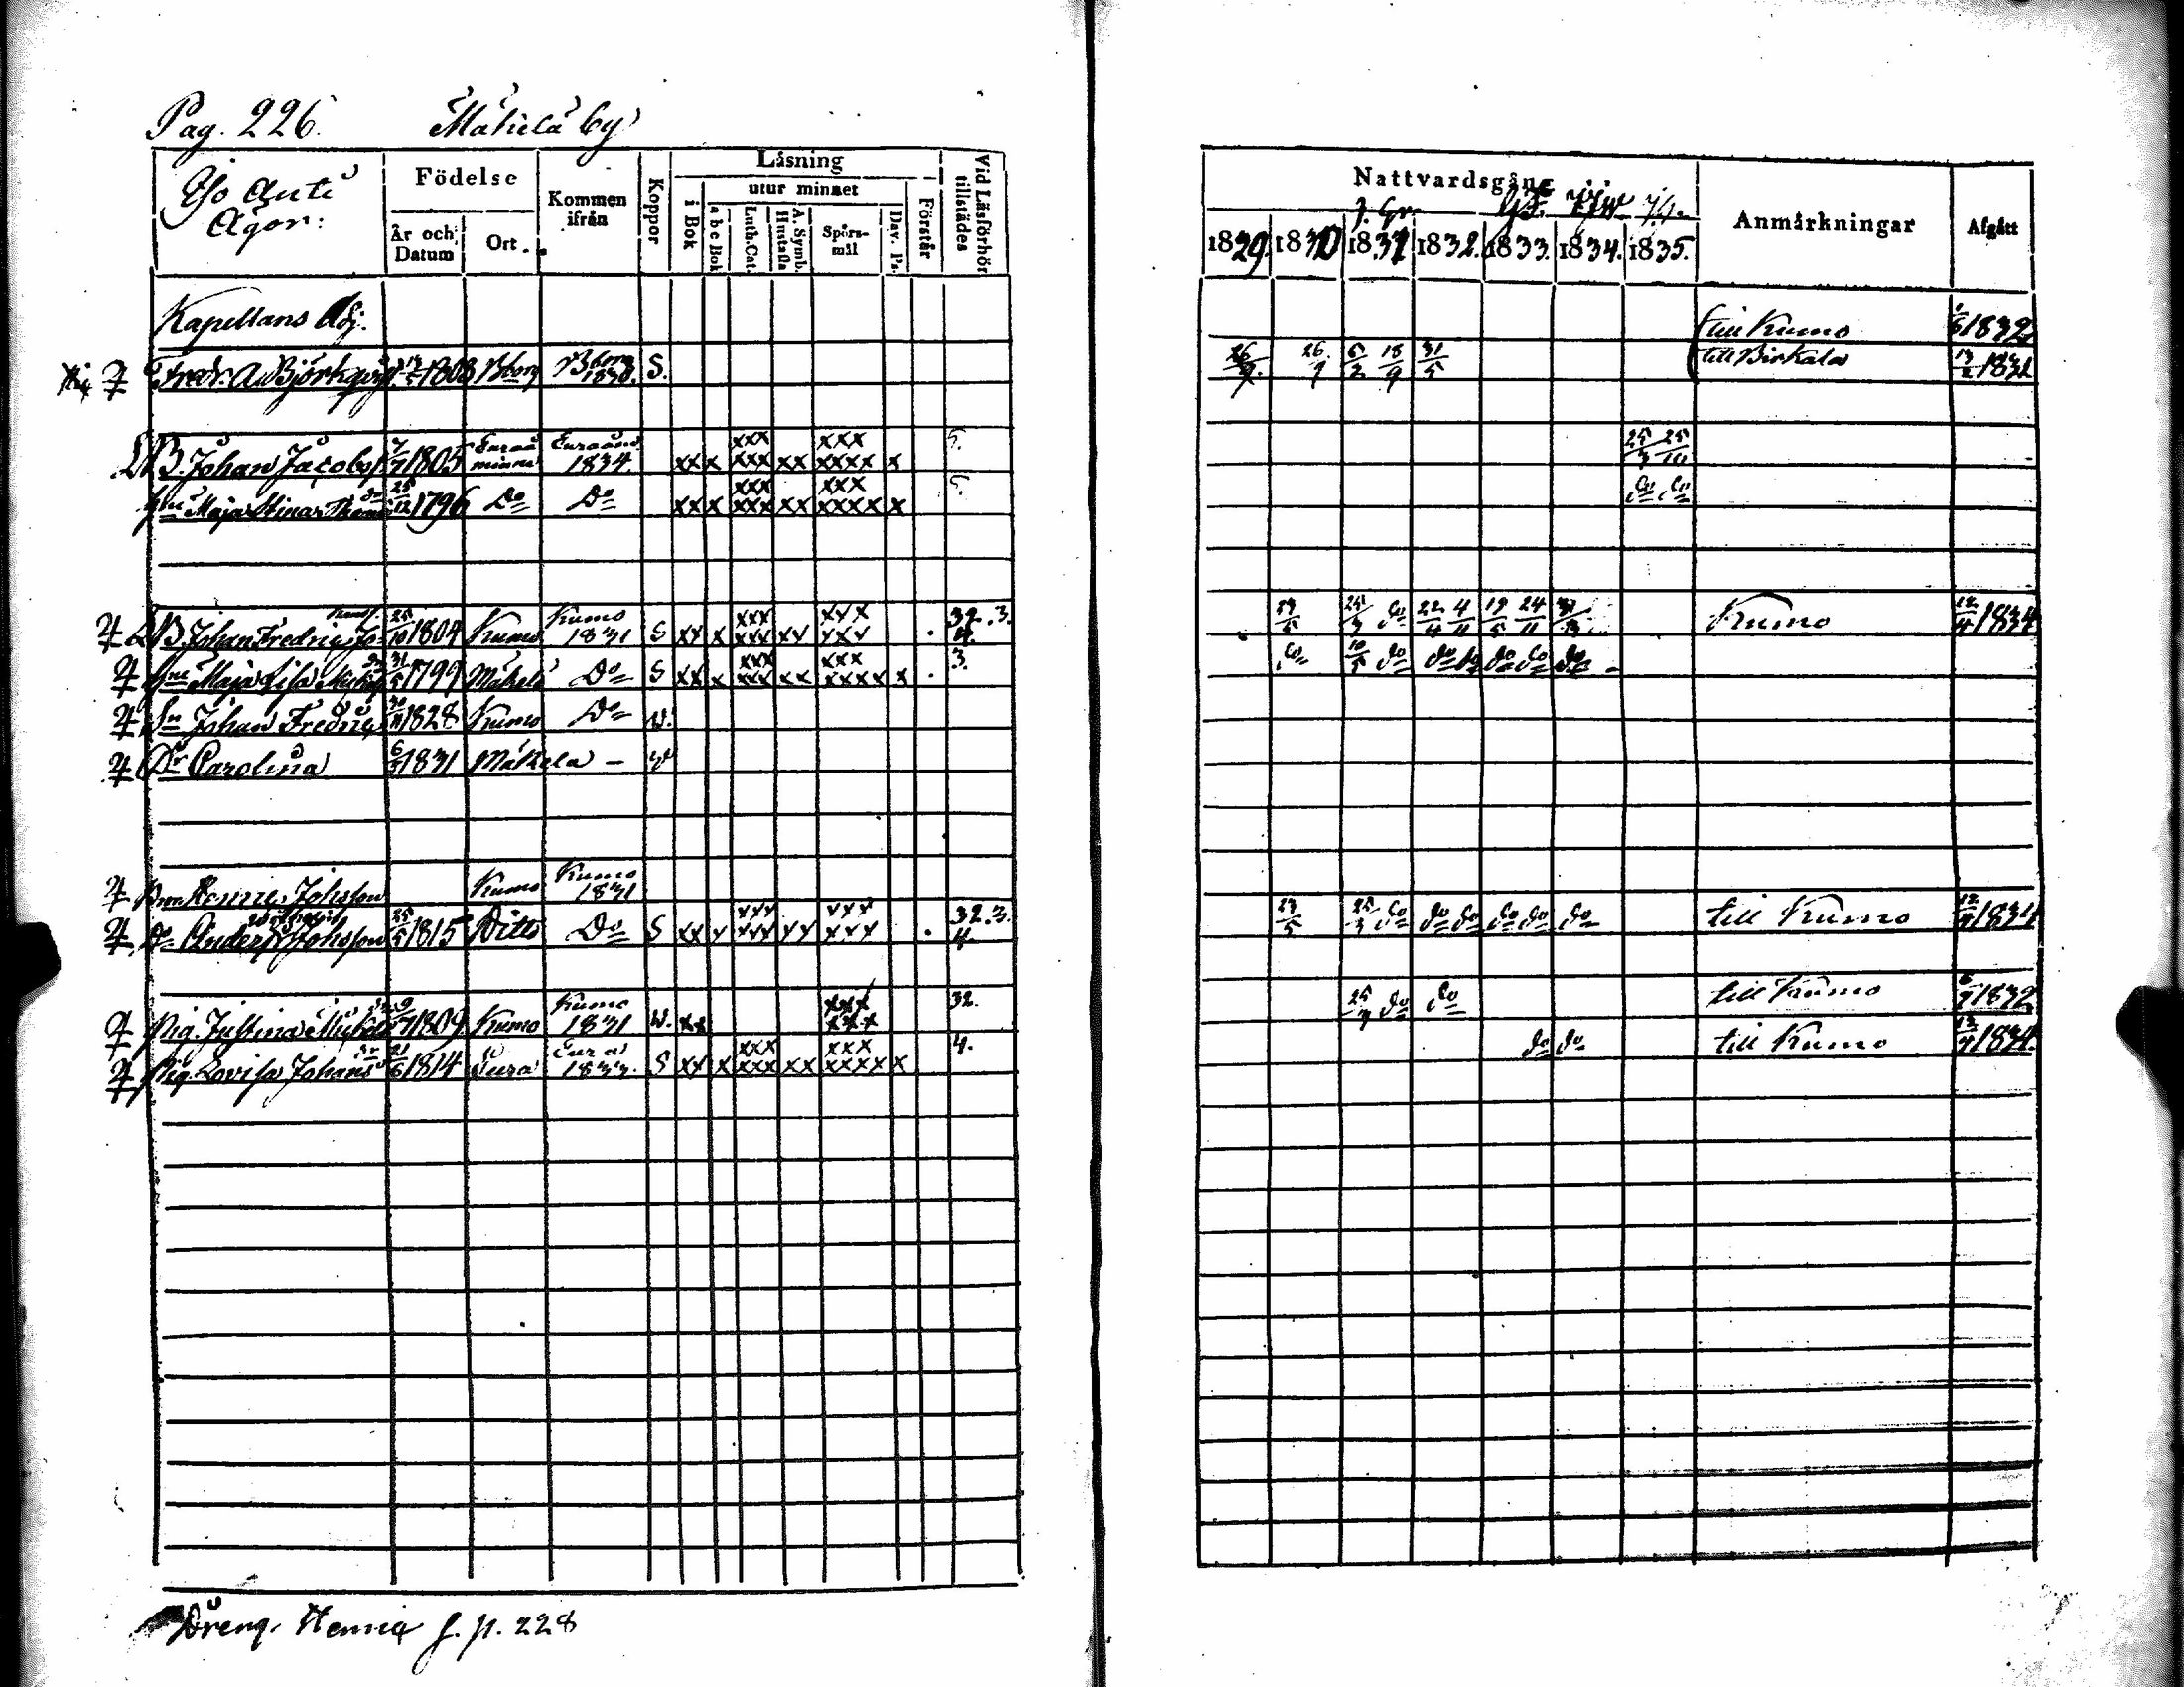 Pag. 226. Mäkelä by
Iso Anti
Ägor:
Födelse
År och Datum
Ort.
Kommen ifrån
Koppor
Läsning
i Bok
utur minnet
a b c Bok
Luth. Cat.
A. Symb. Hustafla
Spörs-mål
Dav. Ps.
Förstår
Vid Läsförhör tillstädes
Nattvardsgång
1829. 1830 1831 1832. 1833. 1834. 1835.
Anmärkningar
Afgått
Kapellans Adj. till Kumo 1832
Fredr. A. Björkqvist 1808 Bborg Bborg 1830. S. 26/9. 26/9 6/2 18/9 31/5 till Birkala 13/2 1831
B. Johan Jacobsf 7/7 1805 Euraåminne Euraåm. 1834. xx x xxx xxx xx xxx xxxx x 5. 25/3 25/10
Maja Stina Thoms dr 25/12 1796 Do Do xx x xxx xxx xx xxx xxxx x 5. do do
B Johan Fredric 25/10 1804 Kumo Kumo 1831 S xx x xxx xxx xx xxx xxx . 32. 3. 4. 25/3 do 22/4 4/11 19/5 24/11 Kumo 12/4 1834
Maja Lisa 31/5 1799 Mäkelä Do S xx x xxx xxx xx xxx xxxx x . 3. do 10/5 do do do do do do
Sn Johan Fredric 1828 Kumo Do W.
Dr Carolina 6/3 1831 Mäkela – W
Henric Johsson Kumo Kumo 1831
Anders Johsson 25/5 1815 Ditto Do S xx x xxx xxx xx xxx xxx . 32. 3. 4. 23/5 25/3 do do do do do do till Kumo 12/4 1834
Pig. Justina 1809 Kumo Kumo 1831 W. xx xxx xxx 32. 25/3 do do till Kumo 1832
Pig. Lovisa Johans dr 21/6 1814 Eura Eura 1833. S xx x xxx xxx xx xxx xxxx x 4. do do till Kumo 1834.
Dräng. Henric f. p. 228